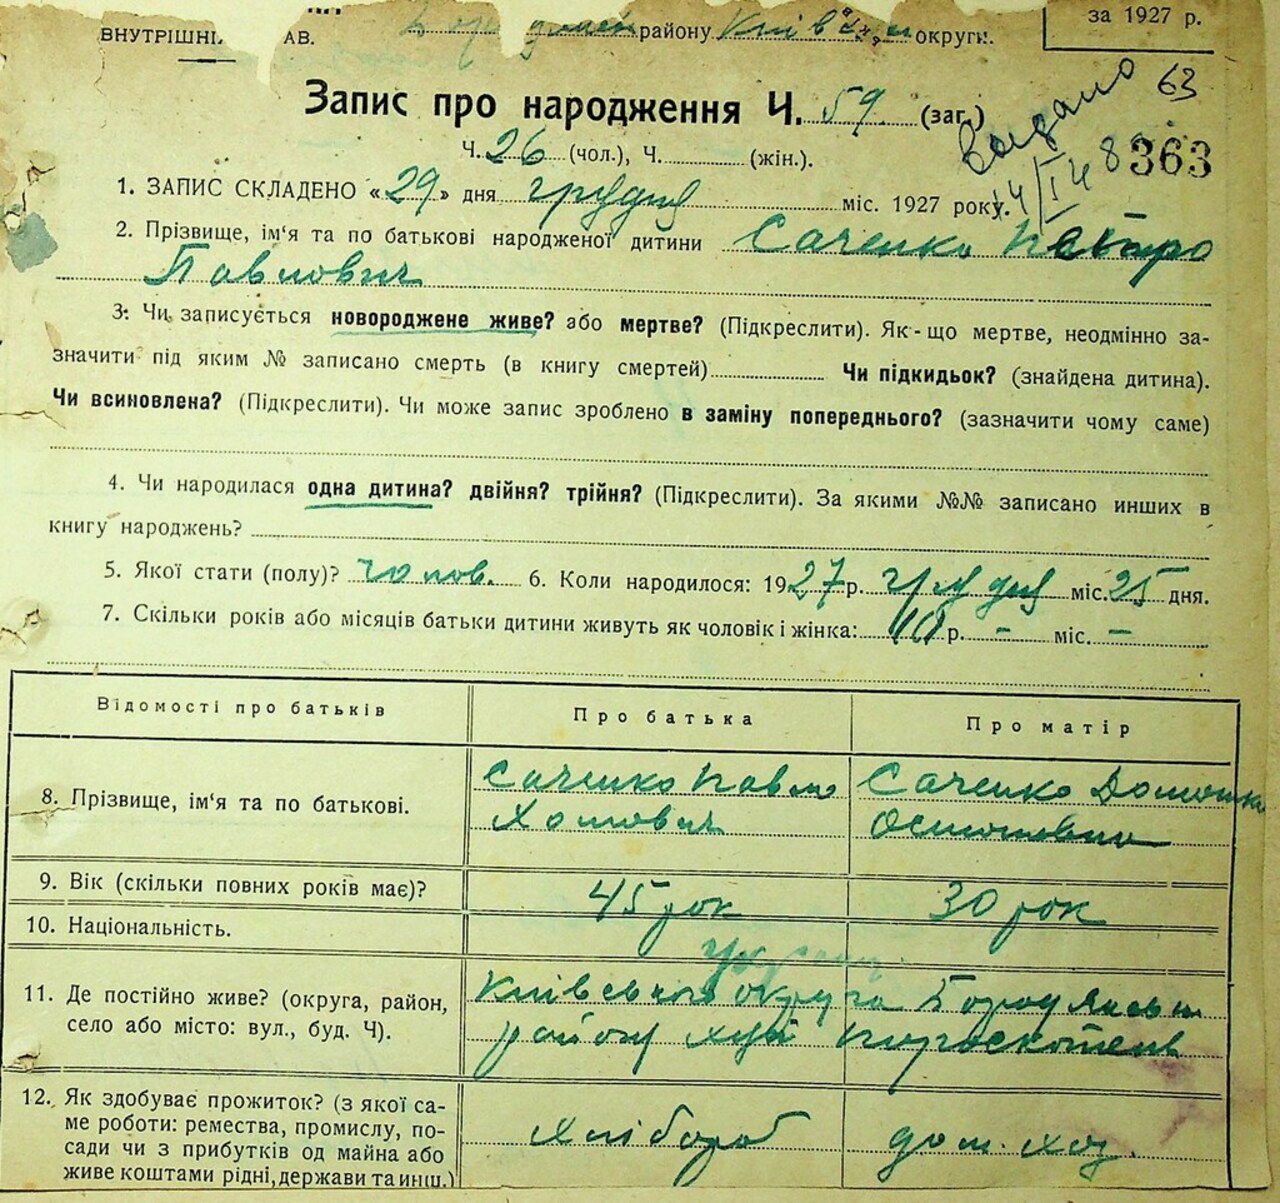 ВНУТРІШНІ АВ. району Київськ округи. за 1927 р.
63
Запис про народження Ч. 59 (заг.)
выдано
14/I 48
363
Ч. 26 (чол.), Ч. (жін.).
1. ЗАПИС СКЛАДЕНО «29» дня грудня міс. 1927 року.
2. Прізвище, ім'я та по батькові народженої дитини Саченко Петро
Павлович
3. Чи записується новороджене живе? або мертве? (Підкреслити). Як-що мертве, неодмінно за-
значити під яким № записано смерть (в книгу смертей) Чи підкидьок? (знайдена дитина).
Чи всиновлена? (Підкреслити). Чи може запис зроблено в заміну попереднього? (зазначити чому саме)
4. Чи народилася одна дитина? двійня? трійня? (Підкреслити). За якими №№ записано инших в
книгу народжень?
5. Якої стати (полу)? чолов. 6. Коли народилося: 1927 р. грудня міс. 25 дня.
7. Скільки років або місяців батьки дитини живуть як чоловік і жінка: 10 р. – міс. –
Відомості про батьків Про батька Про матір
8. Прізвище, ім'я та по батькові. Саченко Павло Саченко Домашка
Хомович
9. Вік (скільки повних років має)? 45 рок 30 рок
10. Національність.
11. Де постійно живе? (округа, район, Київського округа Бородянськ
село або місто: вул., буд. Ч). району хут Пороскотень
12. Як здобуває прожиток? (з якої са-
ме роботи: ремества, промислу, по- хлібороб дом. хоз.
сади чи з прибутків од майна або
живе коштами рідні, держави та инш.)